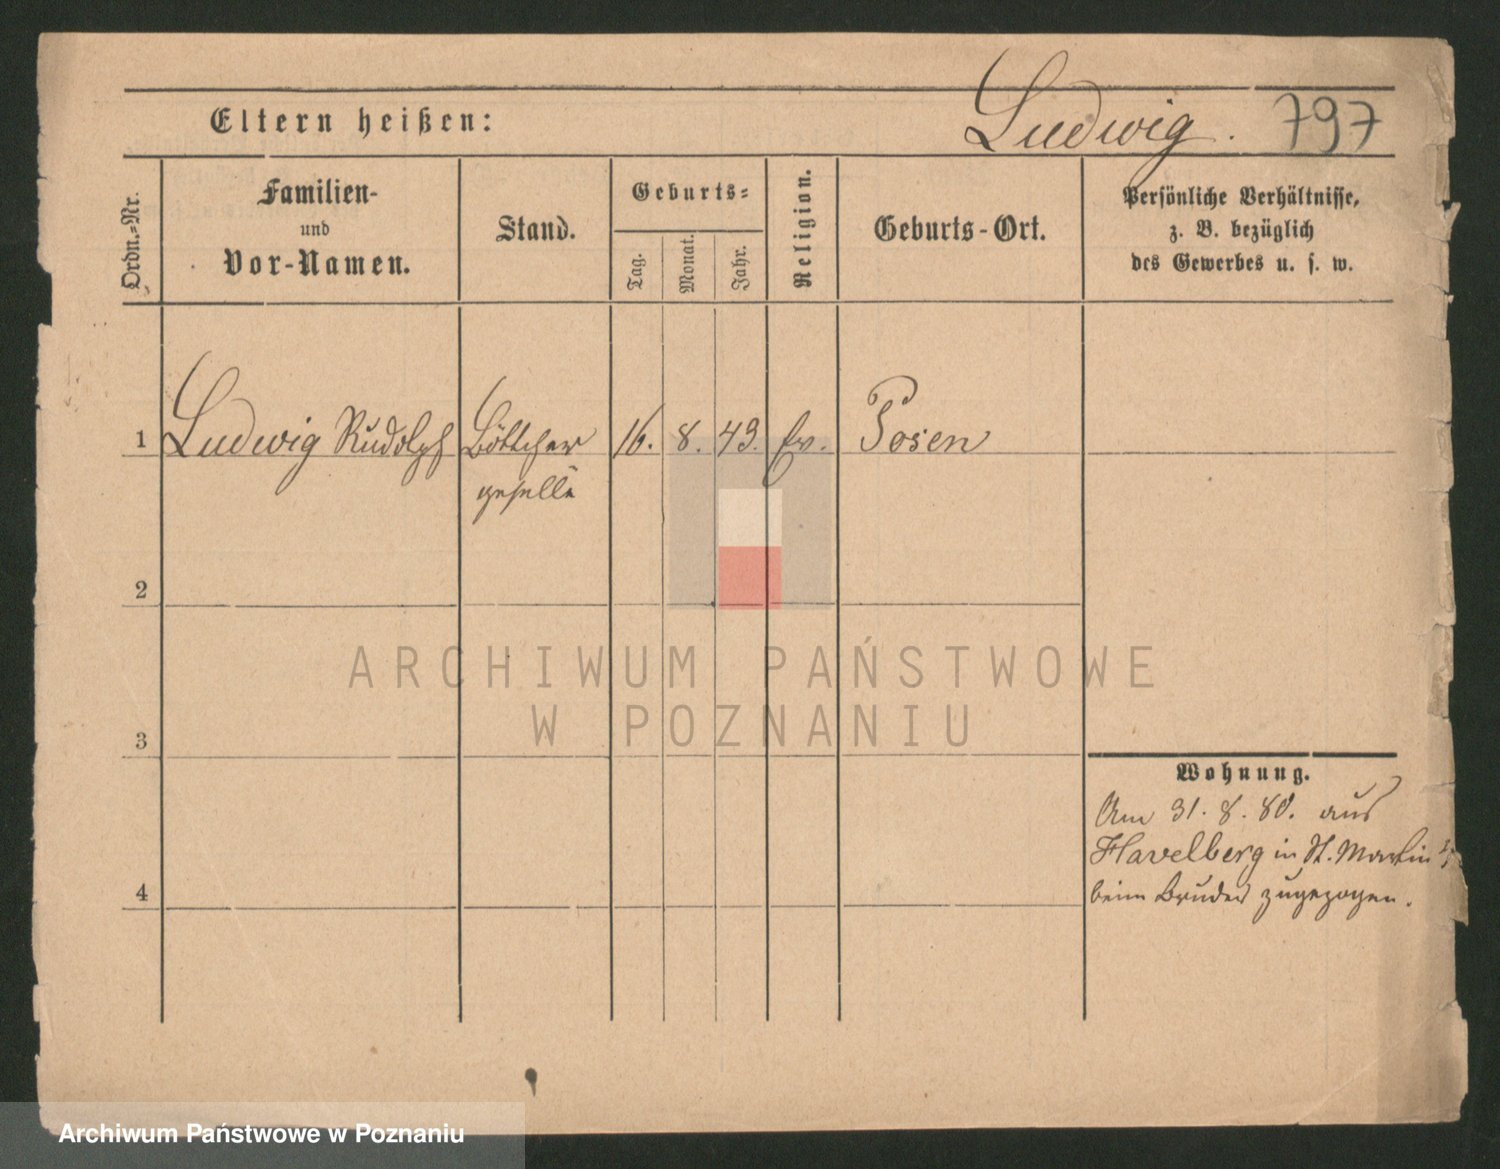 Ludwig. 797
Eltern heißen:
Ordn.-Nr.
Familien-
und
Vor-Namen.
Stand.
Geburts-
Tag.
Monat.
Jahr.
Religion.
Geburts-Ort.
Persönliche Verhältnisse,
z. B. bezüglich
des Gewerbes u. s. w.
1 Ludwig Rudolph Böttcher 16. 8. 43. Ev. Posen
geselle
2
3
4
Wohnung.
Am 31. 8. 80. aus
Havelberg in St. Martin
beim Bruder zugezogen.
ARCHIWUM PAŃSTWOWE
W POZNANIU
Archiwum Państwowe w Poznaniu